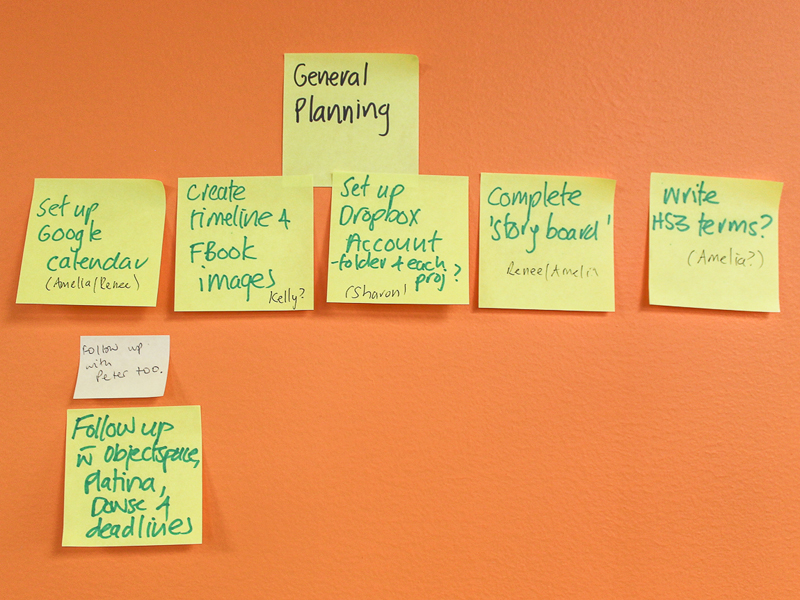 General
Planning
Set up
Google
calendar
(Amelia/Renee)
Create
timeline 4
FBook
images
Kelly?
Set up
Dropbox
Account
-folder 4 each
proj?
(Sharon)
Complete
'story board'
Renee/Amelia
Write
HS3 terms?
(Amelia?)
Follow up
with
Peter too.
Follow up
w̄ Objectspace,
Platina,
Dowse 4
deadlines